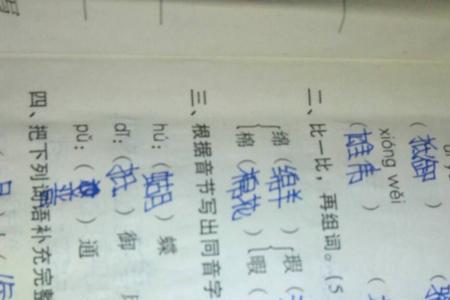 (抵御)
xióng wěi
(雄伟)
二、比一比，再组词。(5
绵(绵羊) 瑕(
棉(棉花) 暇(
三、根据音节写出同音字
hú:(蝴)蝶
dǐ:(抵)御
pǔ:(普)通
四、把下列词语补充完整